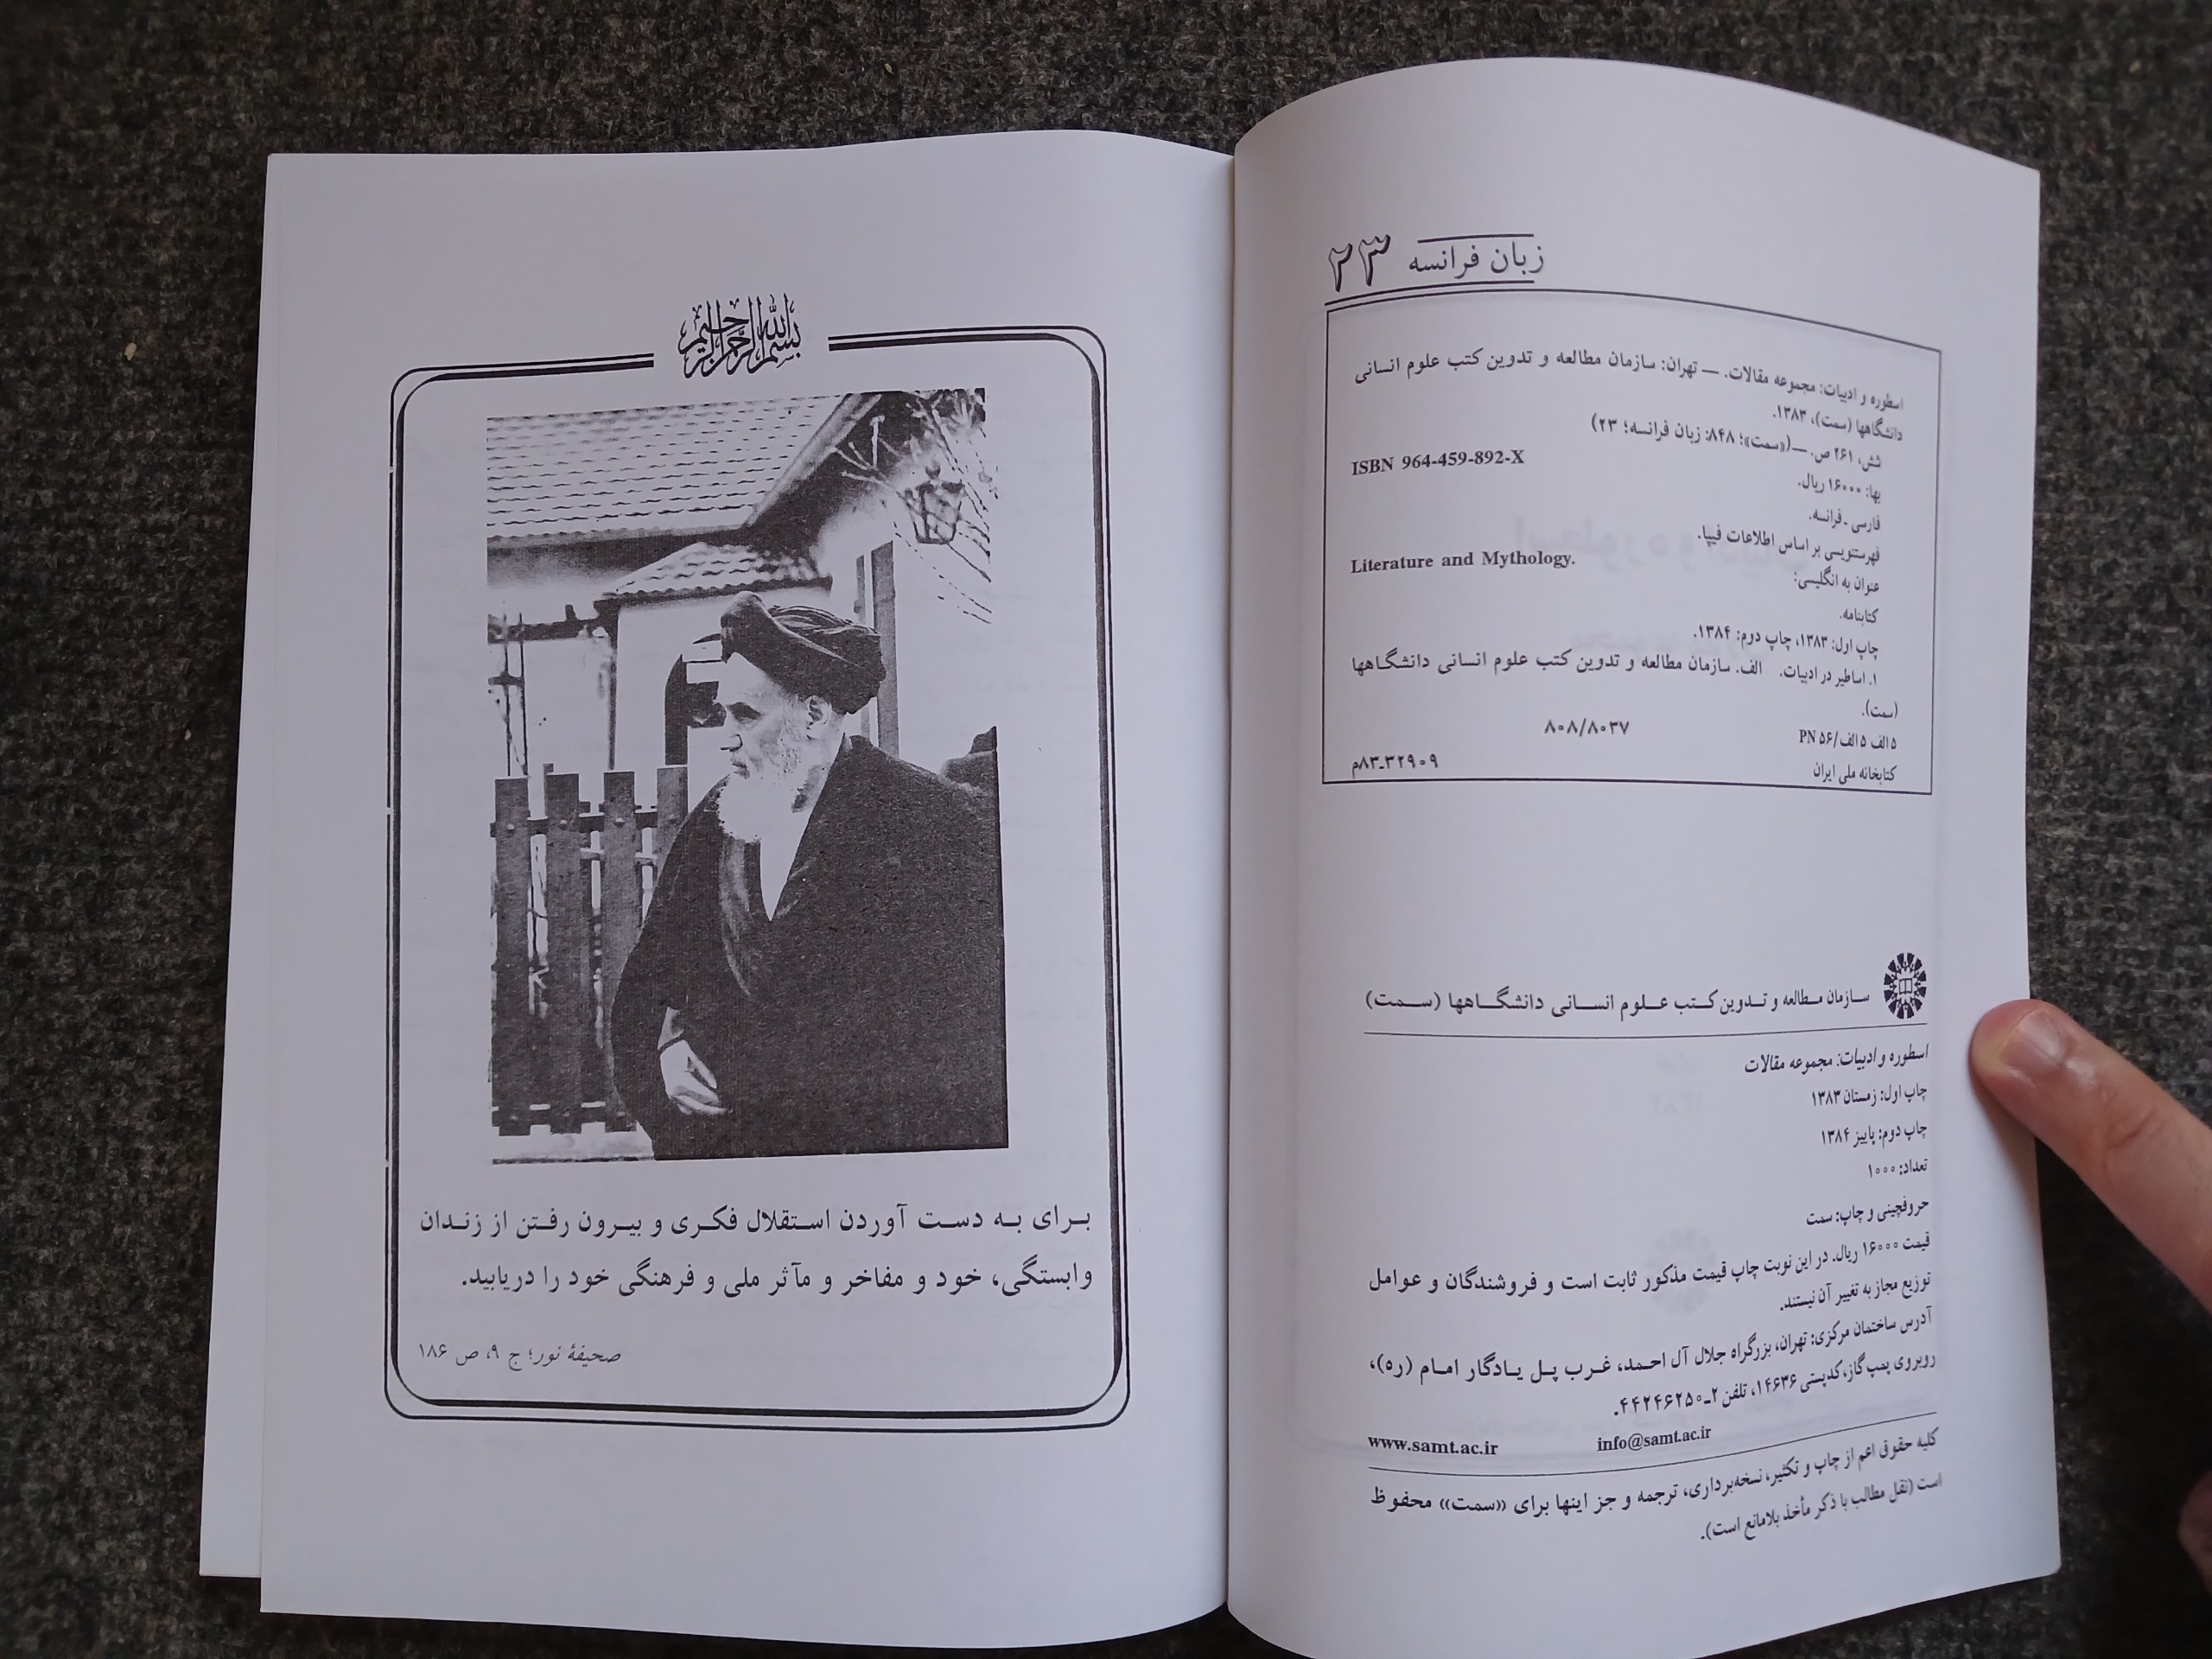 زبان فرانسه ۲۳
اسطوره و ادبیات: مجموعه مقالات. — تهران: سازمان مطالعه و تدوین کتب علوم انسانی
دانشگاهها (سمت)، ۱۳۸۳.
شش، ۲۶۱ ص. —(«سمت»؛ ۸۴۸: زبان فرانسه؛ ۲۳)
ISBN 964-459-892-X
بها: ۱۶۰۰۰ ریال.
فارسی ـ فرانسه.
فهرستنویسی بر اساس اطلاعات فیپا.
عنوان به انگلیسی: Literature and Mythology.
کتابنامه.
چاپ اول: ۱۳۸۳، چاپ دوم: ۱۳۸۴.
۱. اساطیر در ادبیات. الف. سازمان مطالعه و تدوین کتب علوم انسانی دانشگاهها
(سمت).
۵ الف ۵ الف/ PN ۵۶ ۸۰۸/۸۰۳۷
کتابخانه ملی ایران ۳۲۹۰۹ـ۸۳م
سازمان مطالعه و تدوین کتب علوم انسانی دانشگاهها (سمت)
اسطوره و ادبیات: مجموعه مقالات
چاپ اول: زمستان ۱۳۸۳
چاپ دوم: پاییز ۱۳۸۴
تعداد: ۱۰۰۰
حروفچینی و چاپ: سمت
قیمت ۱۶۰۰۰ ریال. در این نوبت چاپ قیمت مذکور ثابت است و فروشندگان و عوامل
توزیع مجاز به تغییر آن نیستند.
آدرس ساختمان مرکزی: تهران، بزرگراه جلال آل احمد، غرب پل یادگار امام (ره)،
روبروی پمپ گاز، کدپستی ۱۴۶۳۶، تلفن ۲ـ۴۴۲۴۶۲۵۰.
www.samt.ac.ir info@samt.ac.ir
کلیه حقوق اعم از چاپ و تکثیر، نسخه‌برداری، ترجمه و جز اینها برای «سمت» محفوظ
است (نقل مطالب با ذکر مأخذ بلامانع است).
بسم الله الرحمن الرحیم
برای به دست آوردن استقلال فکری و بیرون رفتن از زندان
وابستگی، خود و مفاخر و مآثر ملی و فرهنگی خود را دریابید.
صحیفهٔ نور؛ ج ۹، ص ۱۸۶